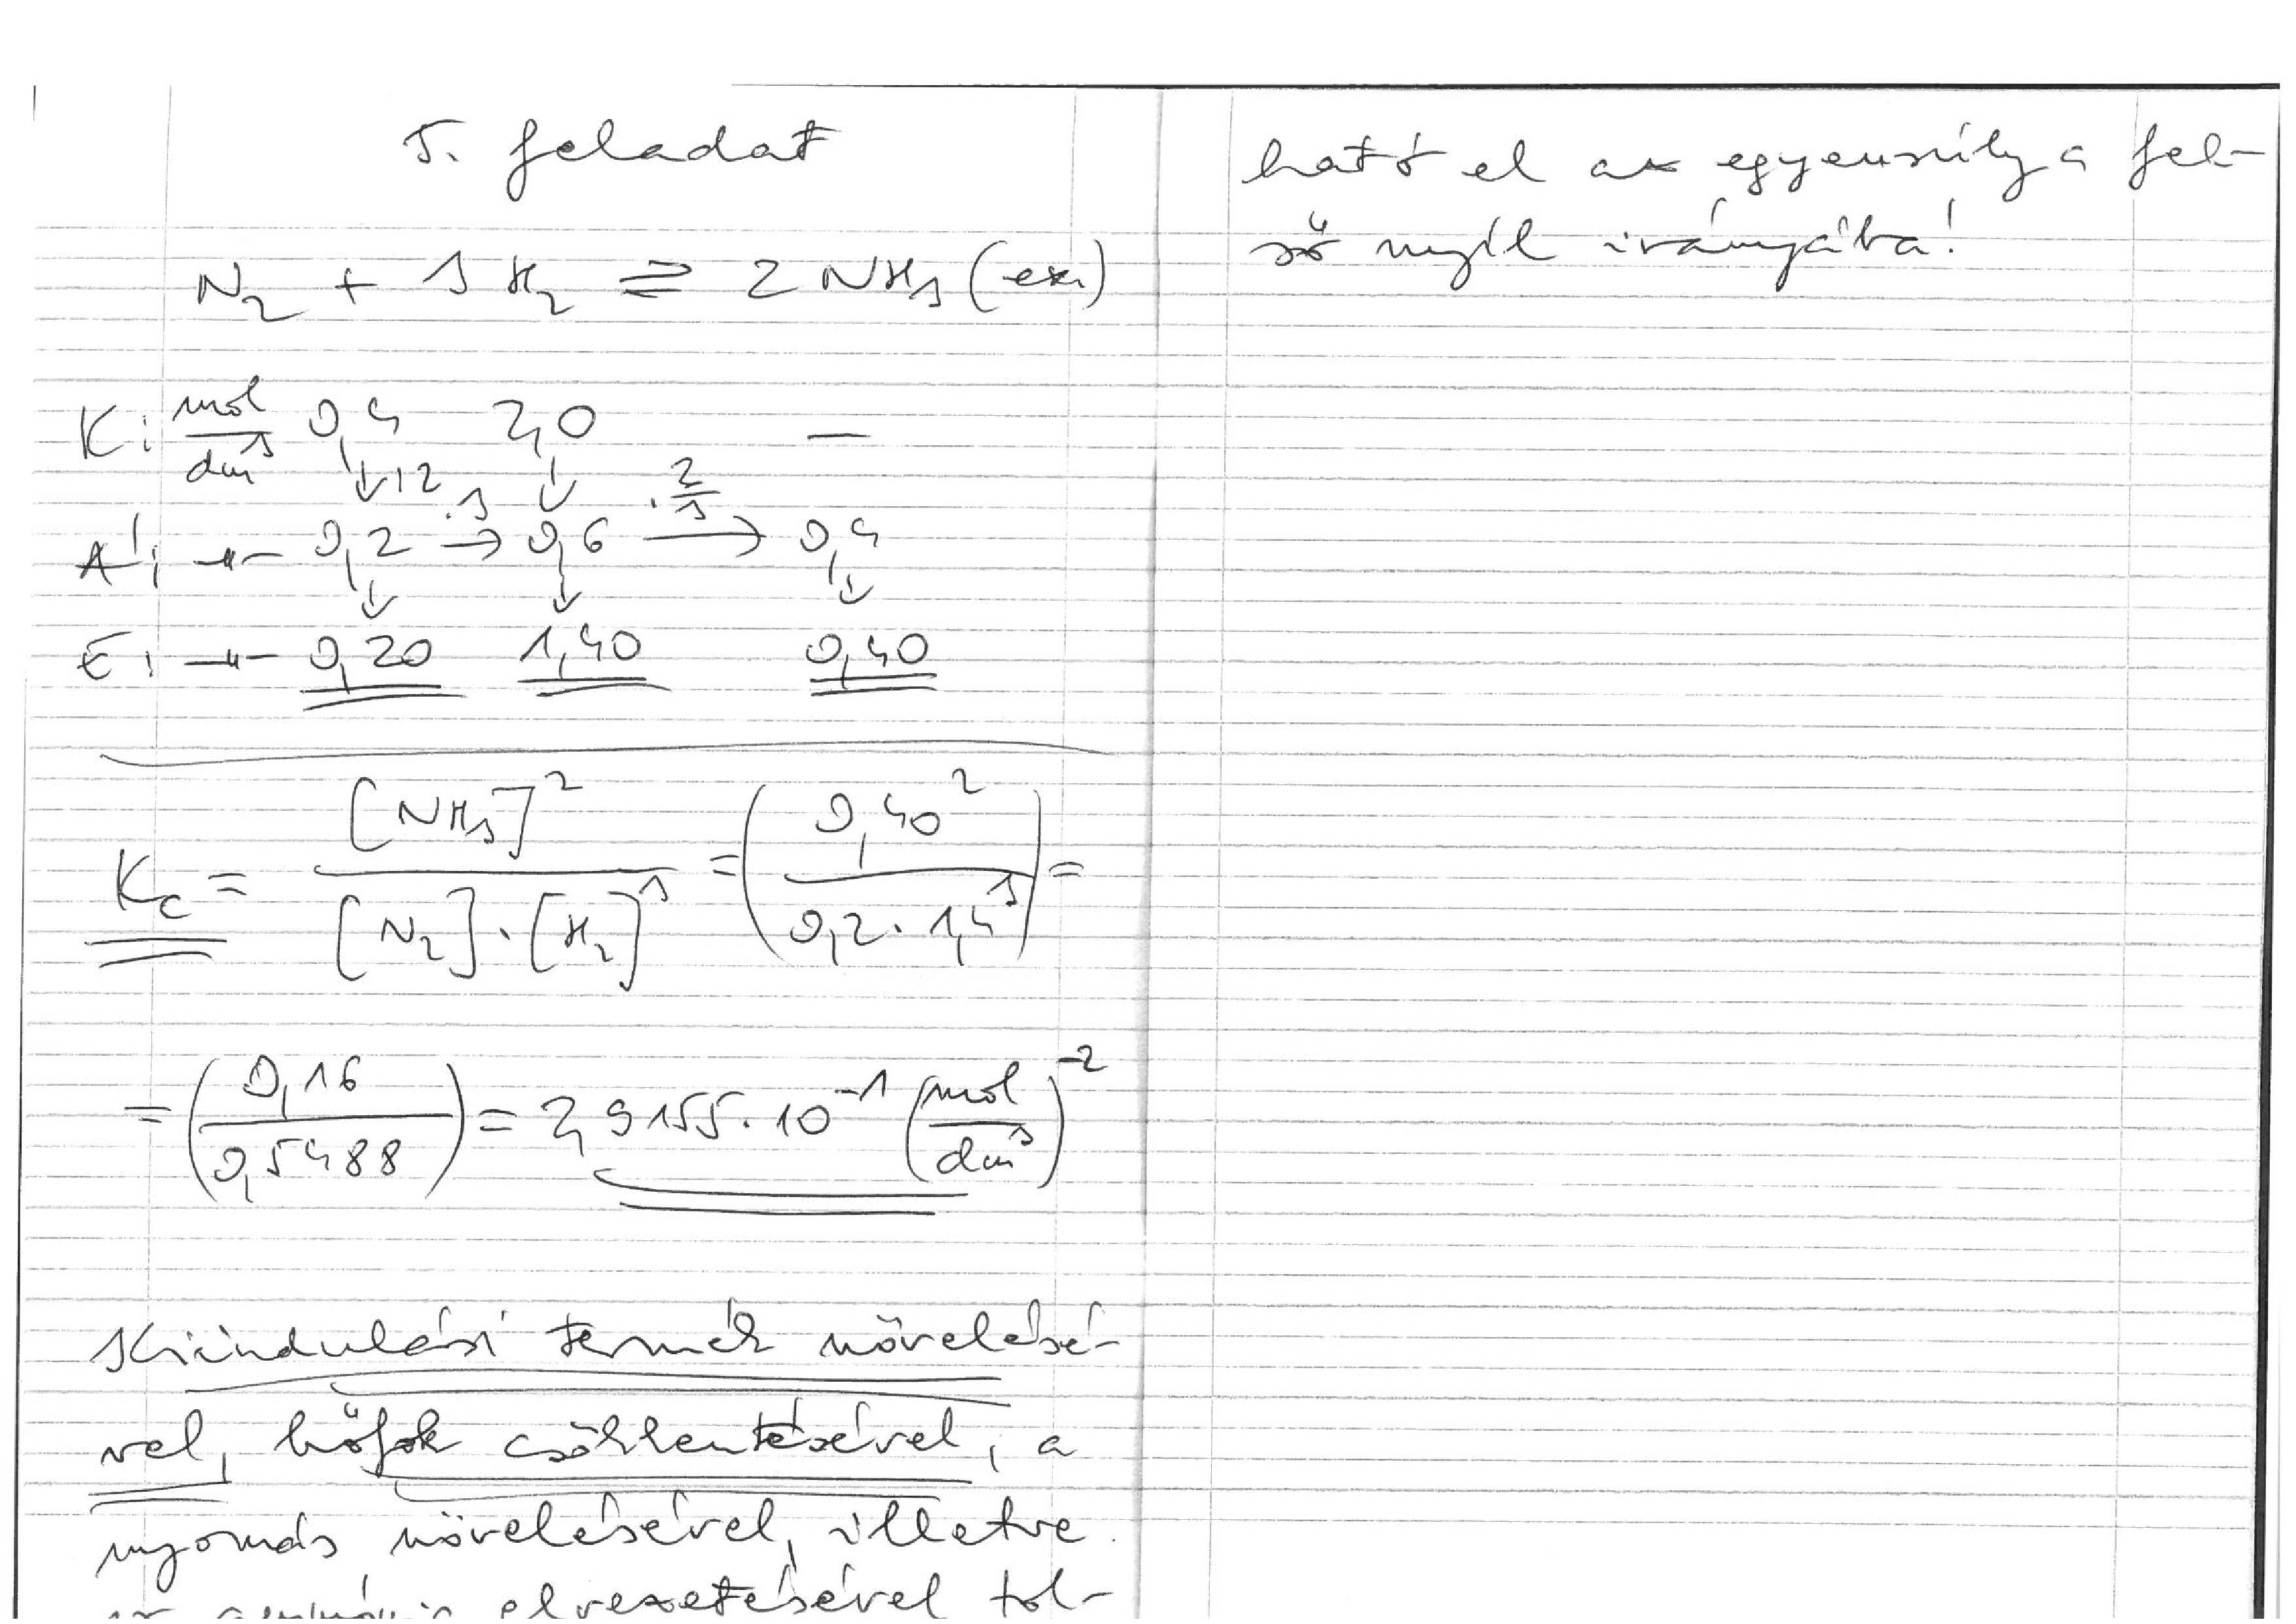 5. feladat
N₂ + 3 H₂ ⇌ 2 NH₃ (exo)
K: mol/dm³ 0,4 2,0 —
↓:2 ·3 ↓ ·2/3
Á: –"– 0,2 → 0,6 → 0,4
↓ ↓ ↓
E: –"– 0,20 1,40 0,40
K_c = [NH₃]² / [N₂]·[H₂]³ = (0,40² / 0,2·1,4³) =
= (0,16 / 0,5488) = 2,9155·10⁻¹ (mol/dm³)⁻²
Kiindulási termék növelésé-
vel, hőfok csökkentésével, a
nyomás növelésével, illetve
az ammónia elvezetésével tol-
ható el az egyensúly a fel-
ső nyíl irányába!